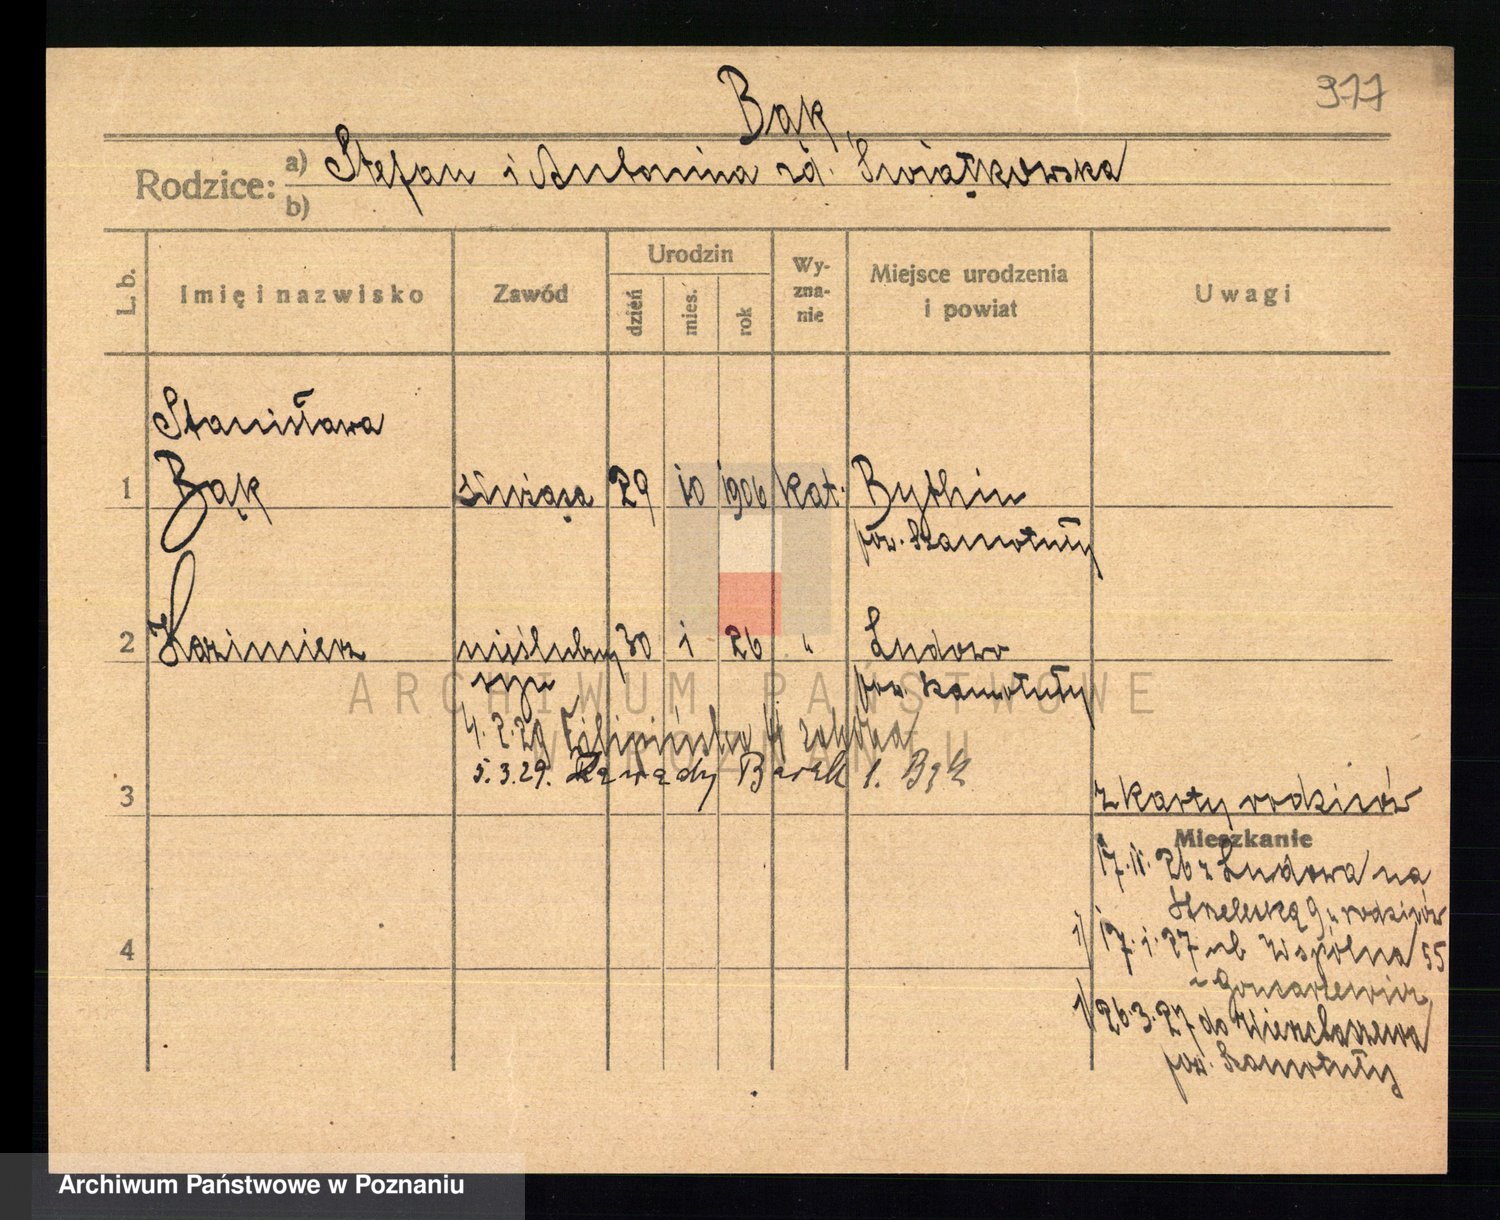 977
Bąk
Rodzice: a) Stefan i Antonina zd. Świątkowska
b)
L. b. Imię i nazwisko Zawód Urodzin Wyznanie Miejsce urodzenia i powiat Uwagi
dzień mies. rok
Stanisława
1 Bąk służąca 29 10 1906 kat. Bythin
pow. Szamotuły
2 Kazimierz nieślubny 30 1 26 " Ludowo
syn pow. Szamotuły
4. 2. 29
5. 3. 29. Bąk
3 z karty rodziców
Mieszkanie
17. 26 z Ludowa na
Strzelecką 9 rodziców
4 1) 17. 1. 27 ul. Wspólna 55
1) 26. 3. 27 do
pow. Szamotuły
ARCHIWUM PAŃSTWOWE
W POZNANIU
Archiwum Państwowe w Poznaniu